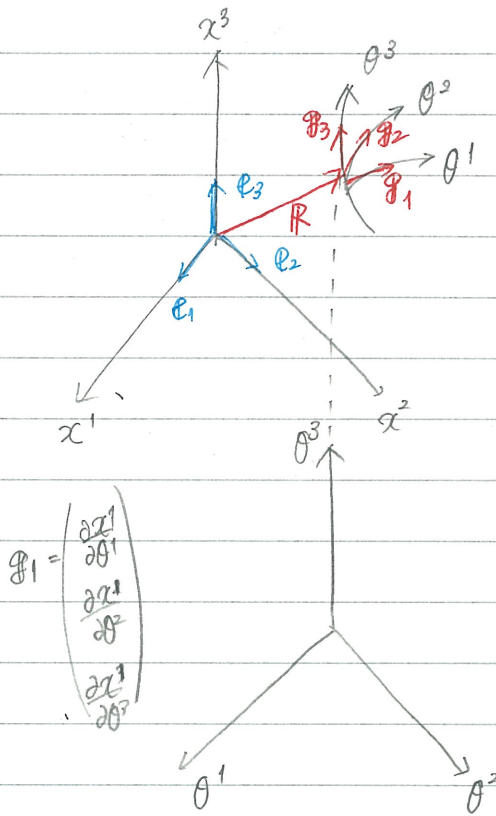 x³
θ³
θ²
g₃
g₂
θ¹
g₁
e₃
R
e₂
e₁
x¹
x²
θ³
g₁ = ( ∂x¹/∂θ¹
∂x¹/∂θ²
∂x¹/∂θ³ )
θ¹
θ²